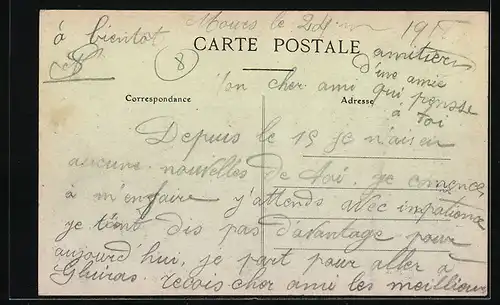 à bientot
Mours le 24 19
CARTE POSTALE
amitier
d'une amie
qui pensse
à toi
8
Mon cher ami
Correspondance
Adresse
Depuis le 15 je n'ais eu
aucune nouvelles de toi. je comence
à m'enfaire j'attends avec impatience
je t'ent dis pas d'avantage pour
aujourd'hui, je part pour aller à
recois cher ami les meilleur